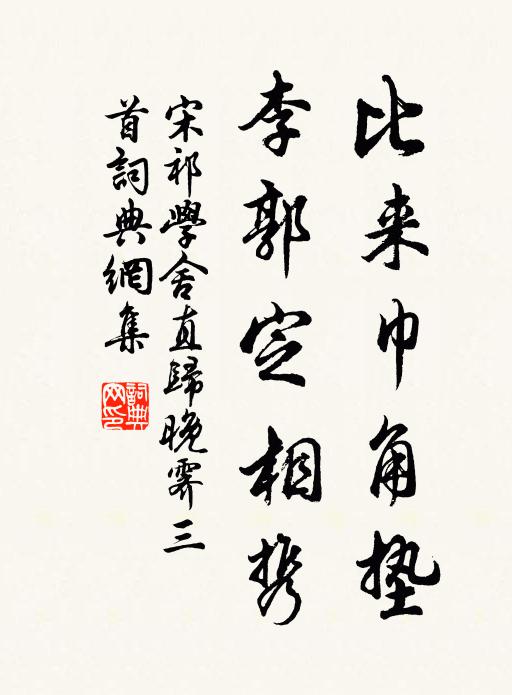 比来巾角墊
李郭定相携
宋祁學舍直歸晚霽三
首詞典網集
詞典網印